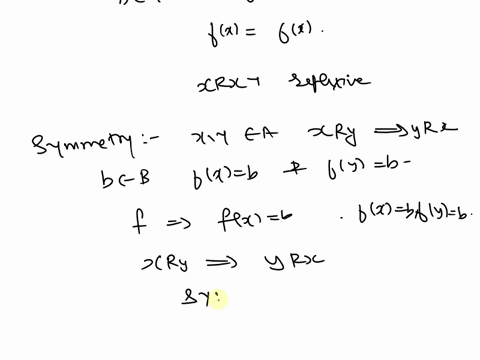 f(x) = f(x).
xRx reflexive
Symmetry:- x, y ∈ A xRy ⟹ yRx
b ∈ B f(x)=b & f(y)=b -
f ⟹ f(x)=b . f(x)=b, f(y)=b.
xRy ⟹ yRx
Sy